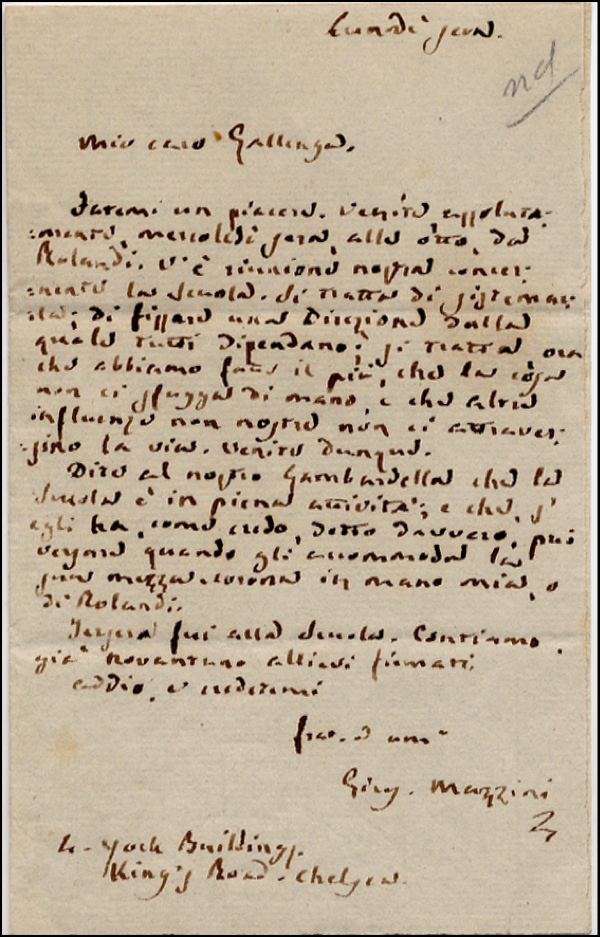 Lunedì sera.
nd
Mio caro Gallenga.
Fatemi un piacere. Venite assoluta-
:mente, mercoledì sera, alle otto, da
Rolandi. V'è riunione nostra concer-
:nente la Scuola. Si tratta di sistemar-
:la; di fissare una Direzione dalla
quale tutti dipendano; si tratta, ora
che abbiamo fatto il più, che la cosa
non ci sfugga di mano, e che altre
influenze non nostre non ci attraver-
:sino la via. Venite dunque.
Dite al nostro Gambardella che la
Scuola è in piena attività; e che, s'
egli ha, come credo, detto davvero, può
versare quando gli accommoda la
sua mezza-corona in mano mia, o
di Rolandi.
Jersera fui alla Scuola. Contiamo
già novantuno allievi firmati.
addio, e credetemi
frat. d am°
Gius. Mazzini
4- York Buildings.
King's Road. Chelsea.